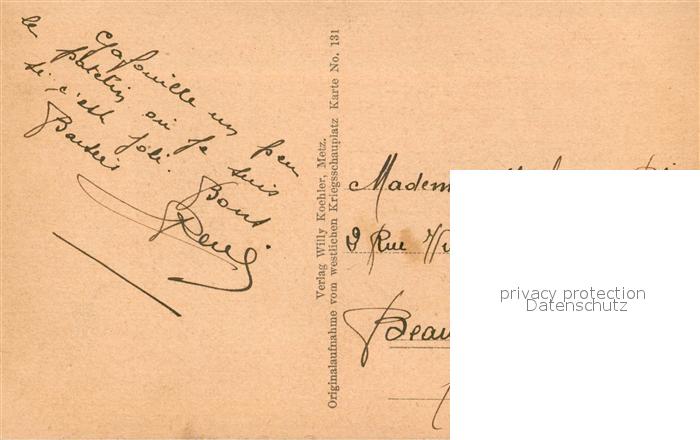 un peu
le patelin où je suis
si c'est joli. Bons
Baisers
René
Verlag Willy Koehler, Metz.
Originalaufnahme vom westlichen Kriegsschauplatz Karte No. 131
Madem
9 Rue
Beau
privacy protection
Datenschutz